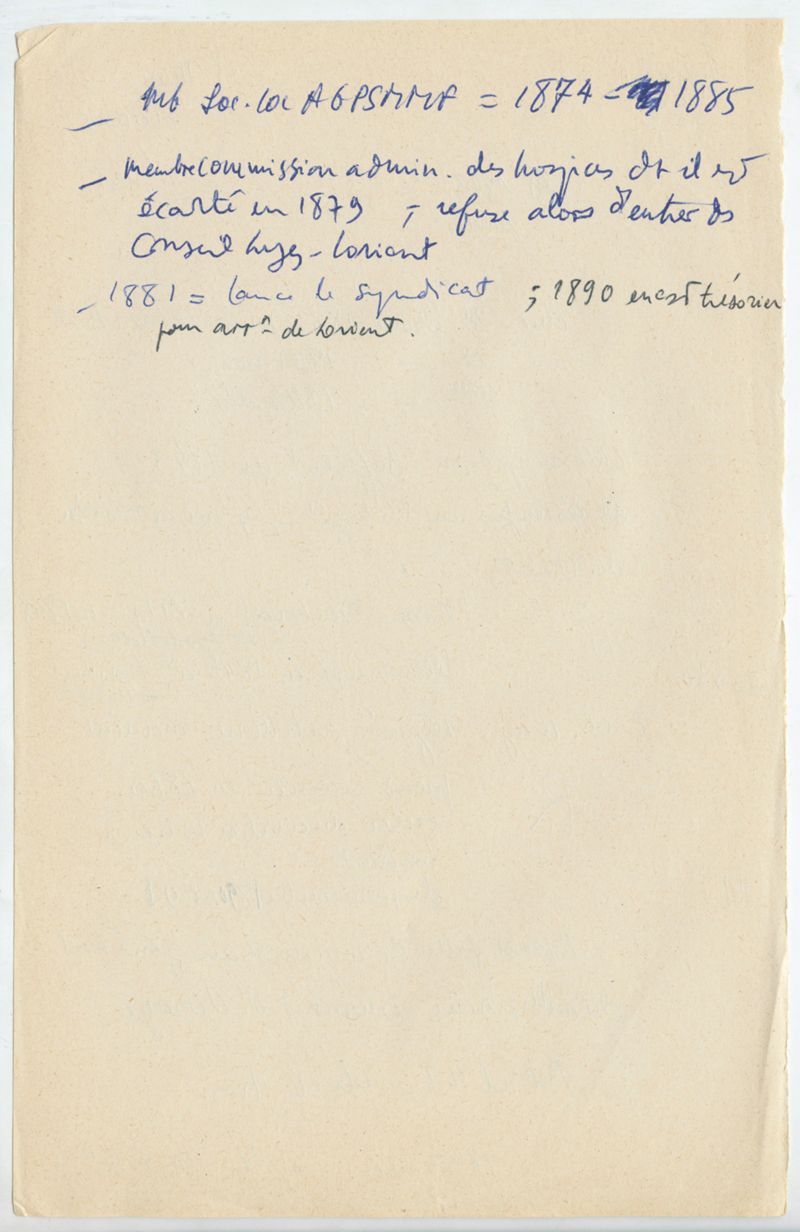 — Mb Soc. loc AGPSMMF = 1874 - 1885
— membre commission admin. des hospices dt il est
écarté en 1879 ; refuse alors d'entrer ds
Conseil hyg - Lorient
- 1881 = lance le syndicat ; 1890 en est trésorier
pour arrt de Lorient.